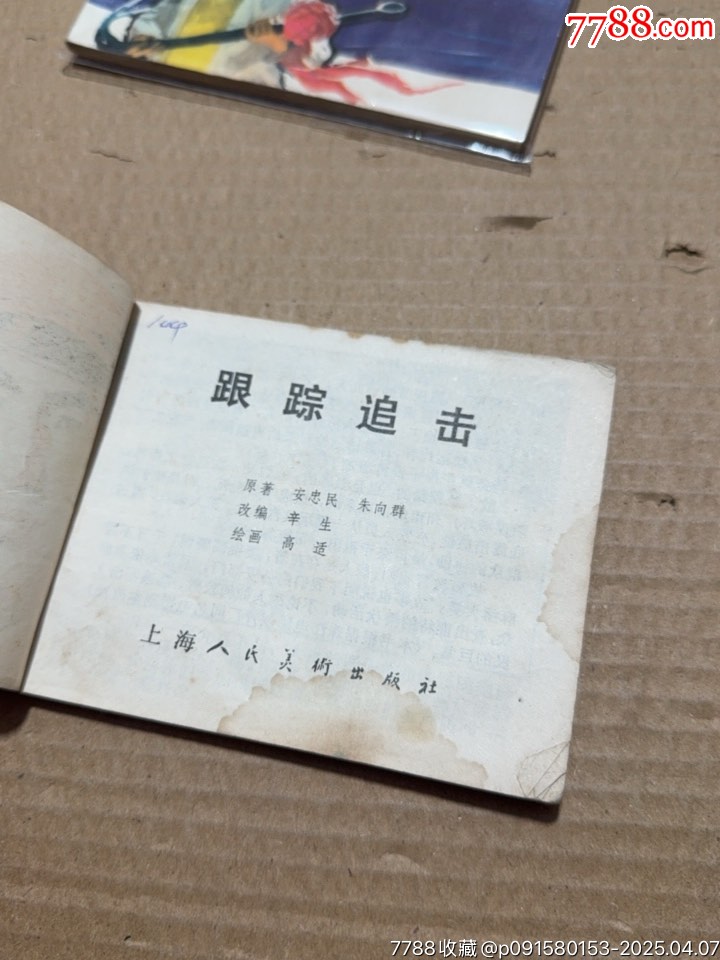 7788.com
跟踪追击
原著 安忠民 朱向群
改编 辛生
绘画 高适
上海人民美術出版社
7788收藏@p091580153-2025.04.07